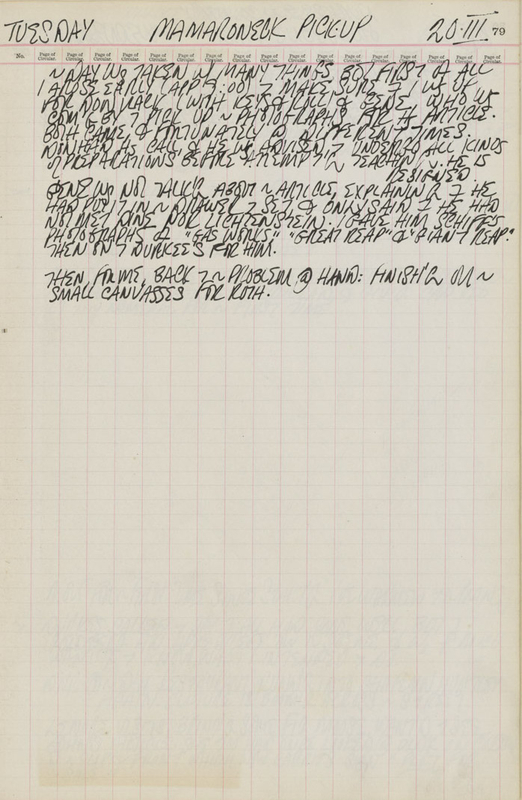 TUESDAY MAMARONECK PICKUP 20·III 79
No. Page of Circular. Page of Circular. Page of Circular. Page of Circular. Page of Circular. Page of Circular. Page of Circular. Page of Circular. Page of Circular. Page of Circular. Page of Circular. Page of Circular. Page of Circular. Page of Circular. Page of Circular. Page of Circular. Page of Circular.
~ DAY WS TAKEN W MANY THINGS BUT FIRST OF ALL
I AROSE EARLY 7 MAKE SURE I WS UP
FOR & GENE WHO WS
COMG BY 7 PICK UP ~ PHOTOGRAPHS FOR ARTICLE.
BOTH CAME, & FORTUNATELY @ DIFFERENT TIMES.
CALL & HE WS ADVISED 7 UNDERGO ALL KINDS
PREPARATIONS BEFORE TEACHING. HE IS
RESIGNED.
GENE WD NOT TALK ABOUT ~ ARTICLE, EXPLAINING HE
HAD PUT IN ~ DRAWER & ONLY SAID HE HAD
NOT MET DINE NOR LICHTENSTEIN. I GAVE HIM SCHIFFS
PHOTOGRAPHS "GAS WORKS" "GREAT REAP" & "GIANT REAP."
THEN ON 7 DURKEES FOR HIM.
THEN, FOR ME, BACK 7 ~ PROBLEM @ HAND: FINISH'G ~
SMALL CANVASSES FOR ROTH.